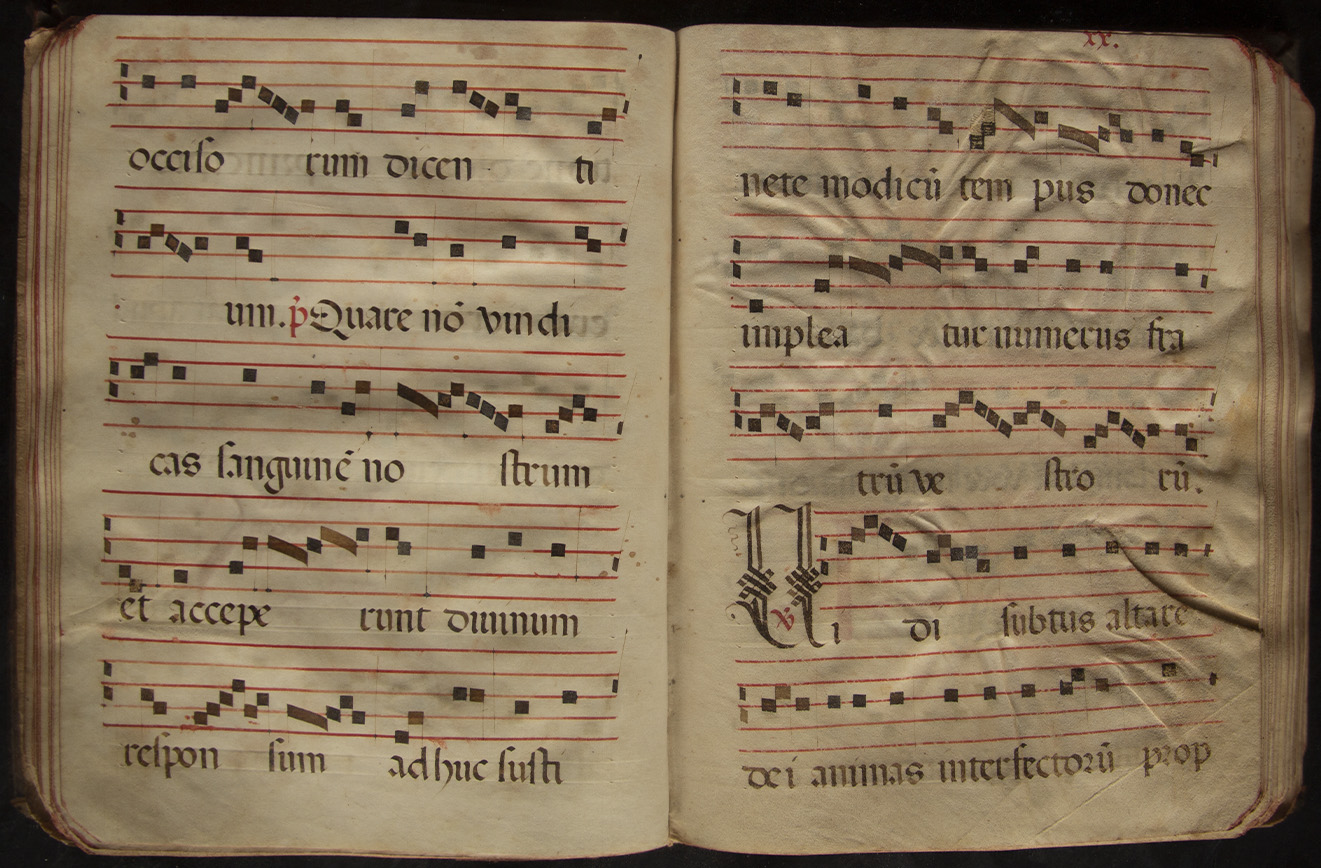 occiso rum dicen ti
um. p̃ Quare nõ vindi
cas sanguinẽ no strum
et accepe runt diuinum
respon sum ad huc susti
xx.
nete modicũ tem pus donec
implea tur numerus fra
trũ ve stro rũ.
℣ Ui di subtus altare
dei animas interfectorũ prop